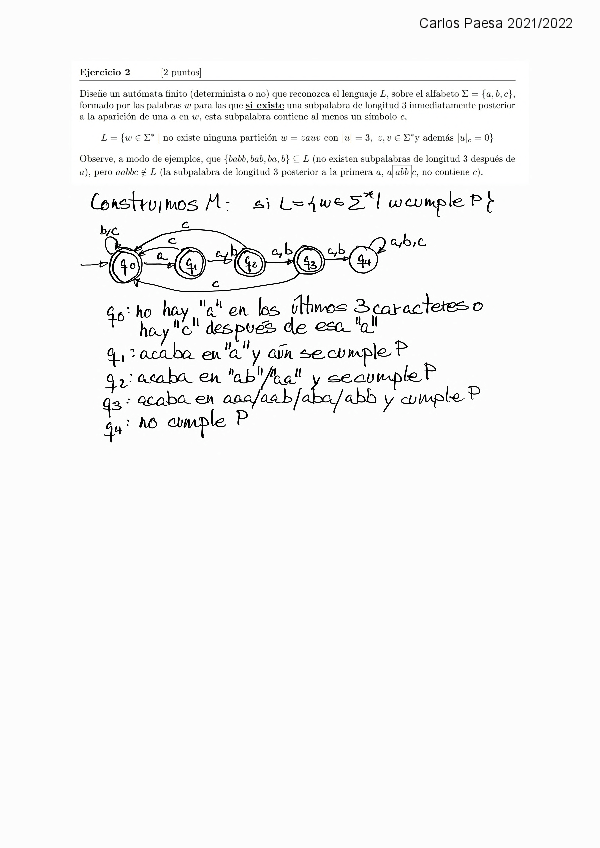 Carlos Paesa 2021/2022
Ejercicio 2 [2 puntos]
Diseñe un autómata finito (determinista o no) que reconozca el lenguaje L, sobre el alfabeto Σ = {a, b, c},
formado por las palabras w para las que si existe una subpalabra de longitud 3 inmediatamente posterior
a la aparición de una a en w, esta subpalabra contiene al menos un símbolo c.
L = {w ∈ Σ* | no existe ninguna partición w = vauv con |u| = 3, v, v ∈ Σ* y además |u|c = 0}
Observe, a modo de ejemplos, que {babb, bab, ba, b} ⊆ L (no existen subpalabras de longitud 3 después de
a), pero aabbc ∉ L (la subpalabra de longitud 3 posterior a la primera a, a|abb|c, no contiene c).
Construimos M: si L={w∈Σ*| w cumple P}
b,c c c a a,b a,b a,b a,b,c
q0 q1 q2 q3 q4
c
q0: no hay "a" en los últimos 3 caracteres o
hay "c" después de esa "a"
q1: acaba en "a" y aún se cumple P
q2: acaba en "ab"/"aa" y se cumple P
q3: acaba en aaa/aab/aba/abb y cumple P
q4: no cumple P